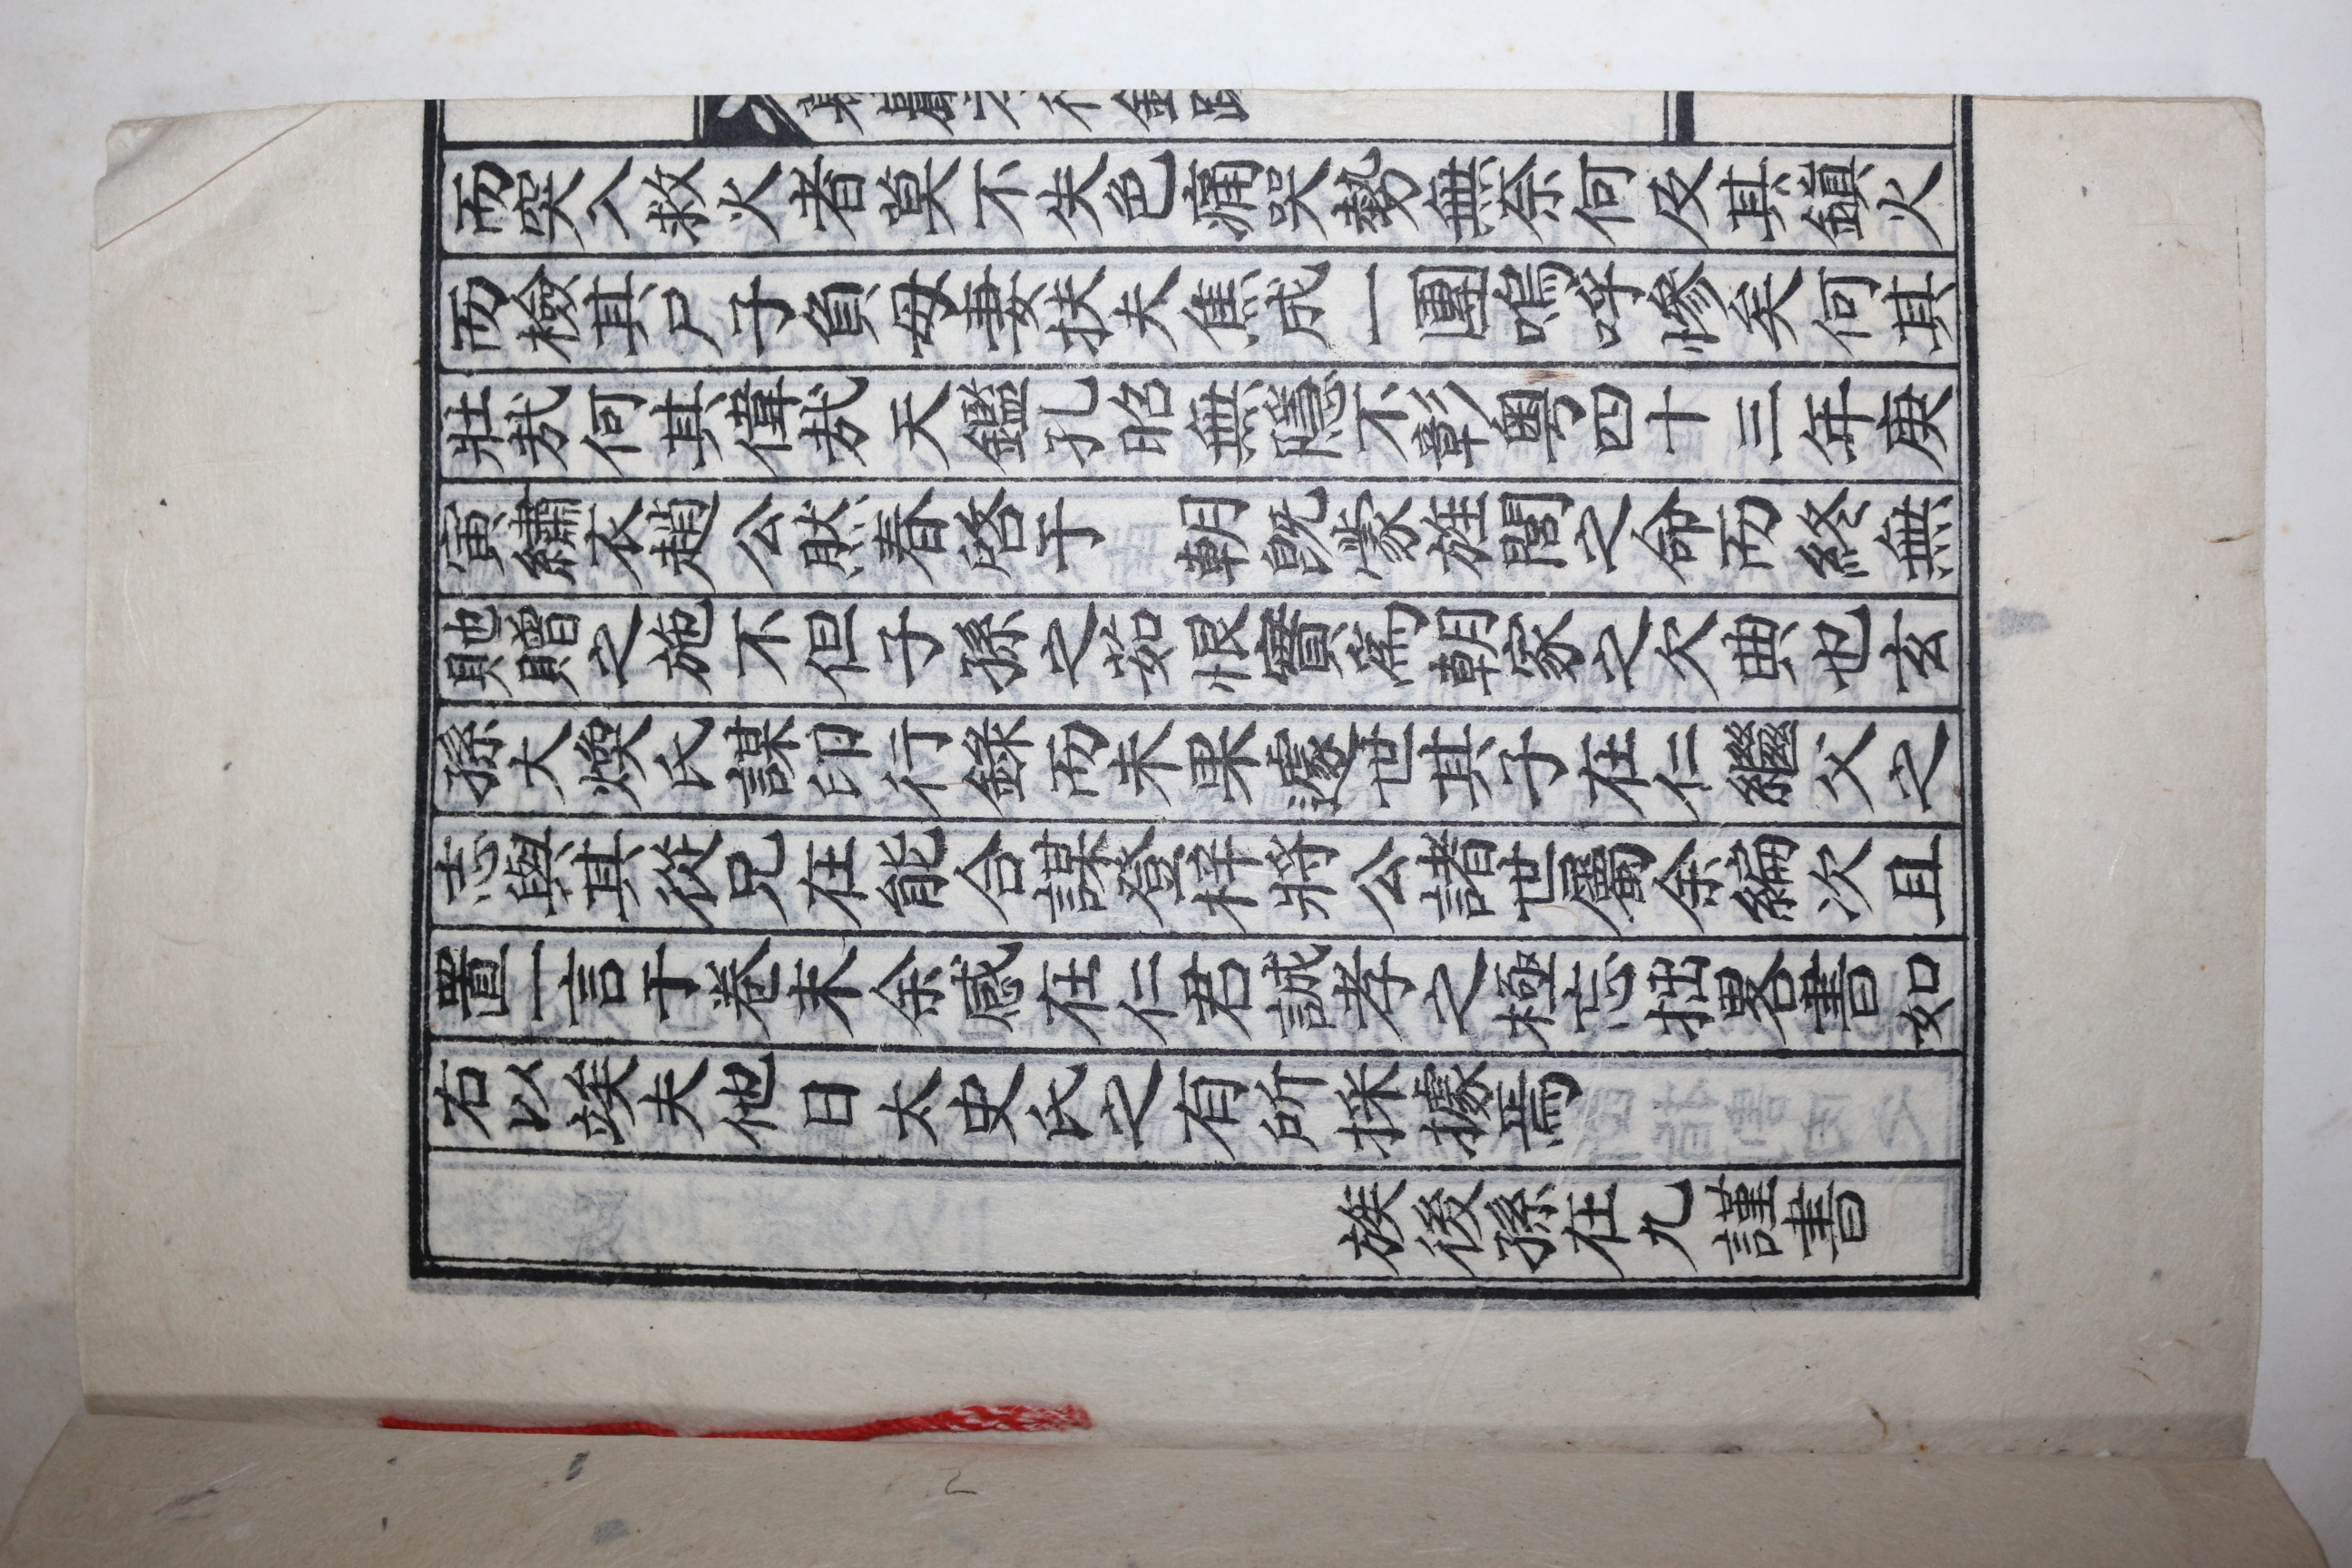 而突入救火者莫不失色痛哭勢無奈何及其鎭火
而檢其尸子負母妻扶夫焦成一團嗚呼慘矣何其
壯哉何其偉哉天鑑孔昭無隱不彰粤四十三年庚
寅繡衣趙公然春啓于 朝旣蒙旌閭之命而終無
貤贈之施不但子孫之茹恨實爲朝家之欠典也玄
孫大煥氏謀印行錄而未果遽世其子在仁繼父之
志與其從兄在能合謀發梓將公諸世屬余編次且
置一言于卷末余感在仁君誠孝之極忘拙畧書如
右以竢夫他日太史氏之有所採據焉
族後孫在九謹書